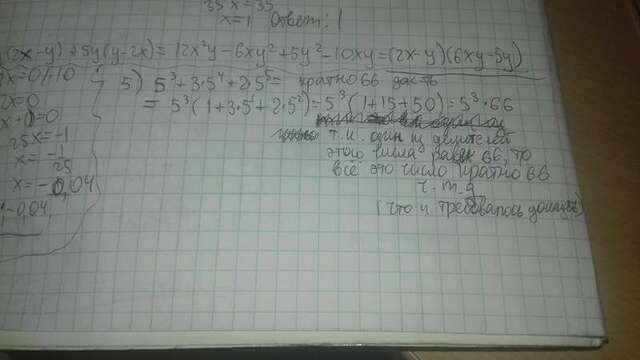 35x=35
x=1 Ответ: 1
(2x-y)+5y(y-2x)=12x²y-6xy²+5y²-10xy=(2x-y)(6xy-5y)
x=0/:10
2x=0
x+1=0
25x=-1
x=-1/25
x=-0,04
-0,04
5) 5³+3·5⁴+2·5⁵= кратно 66 док-ть
=5³(1+3·5¹+2·5²)=5³(1+15+50)=5³·66
т.к. один из делителей
этого числа равен 66, то
всё это число кратно 66
ч.т.д
(что и требовалось доказать)